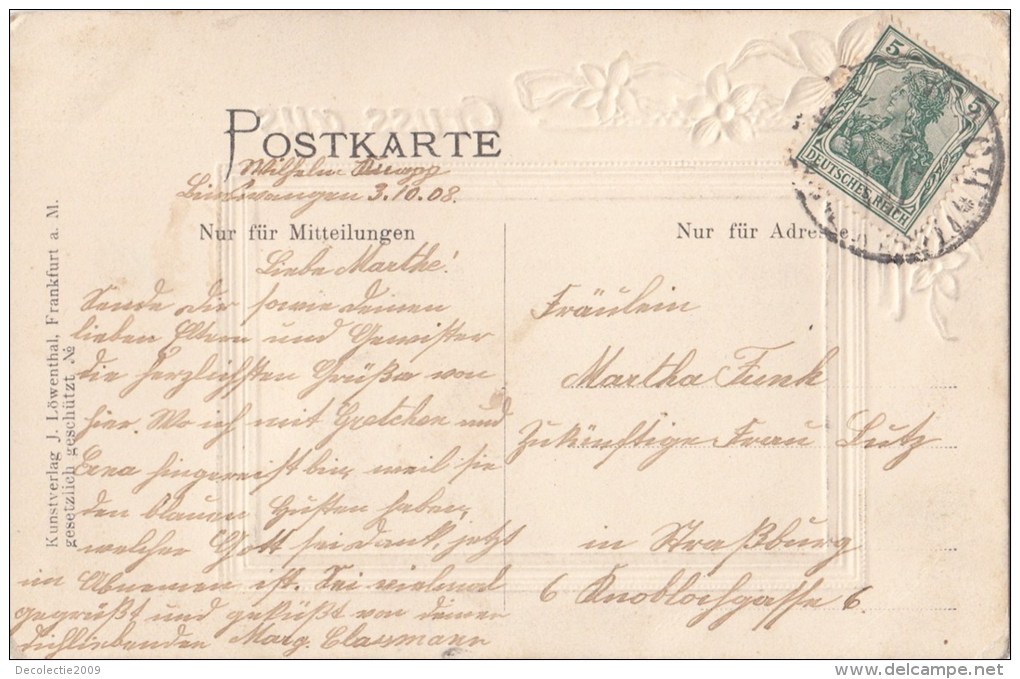 Gruss aus
POSTKARTE
Wilhelm
3.10.08.
Nur für Mitteilungen
Nur für Adresse
Liebe Marthe!
Sende dir sowie deinen
lieben Eltern und Gewister
die herzlichsten Grüße von
hier. Wo ich mit Gretchen und
Erna hingereist bin, weil sie
den blauen Husten haben,
welcher Gott sei dank, jetzt
im Abnemen ist. Sei vielmal
gegrüßt und geküßt von deiner
dichliebenden Marg. Classmann
Fräulein
Martha Funk
Zukünftige Frau Lutz
in Straßburg
6 Knoblochgasse 6.
Kunstverlag J. Löwenthal, Frankfurt a. M.
gesetzlich geschützt №
5
DEUTSCHES REICH
Decolectie2009
delcampe.net